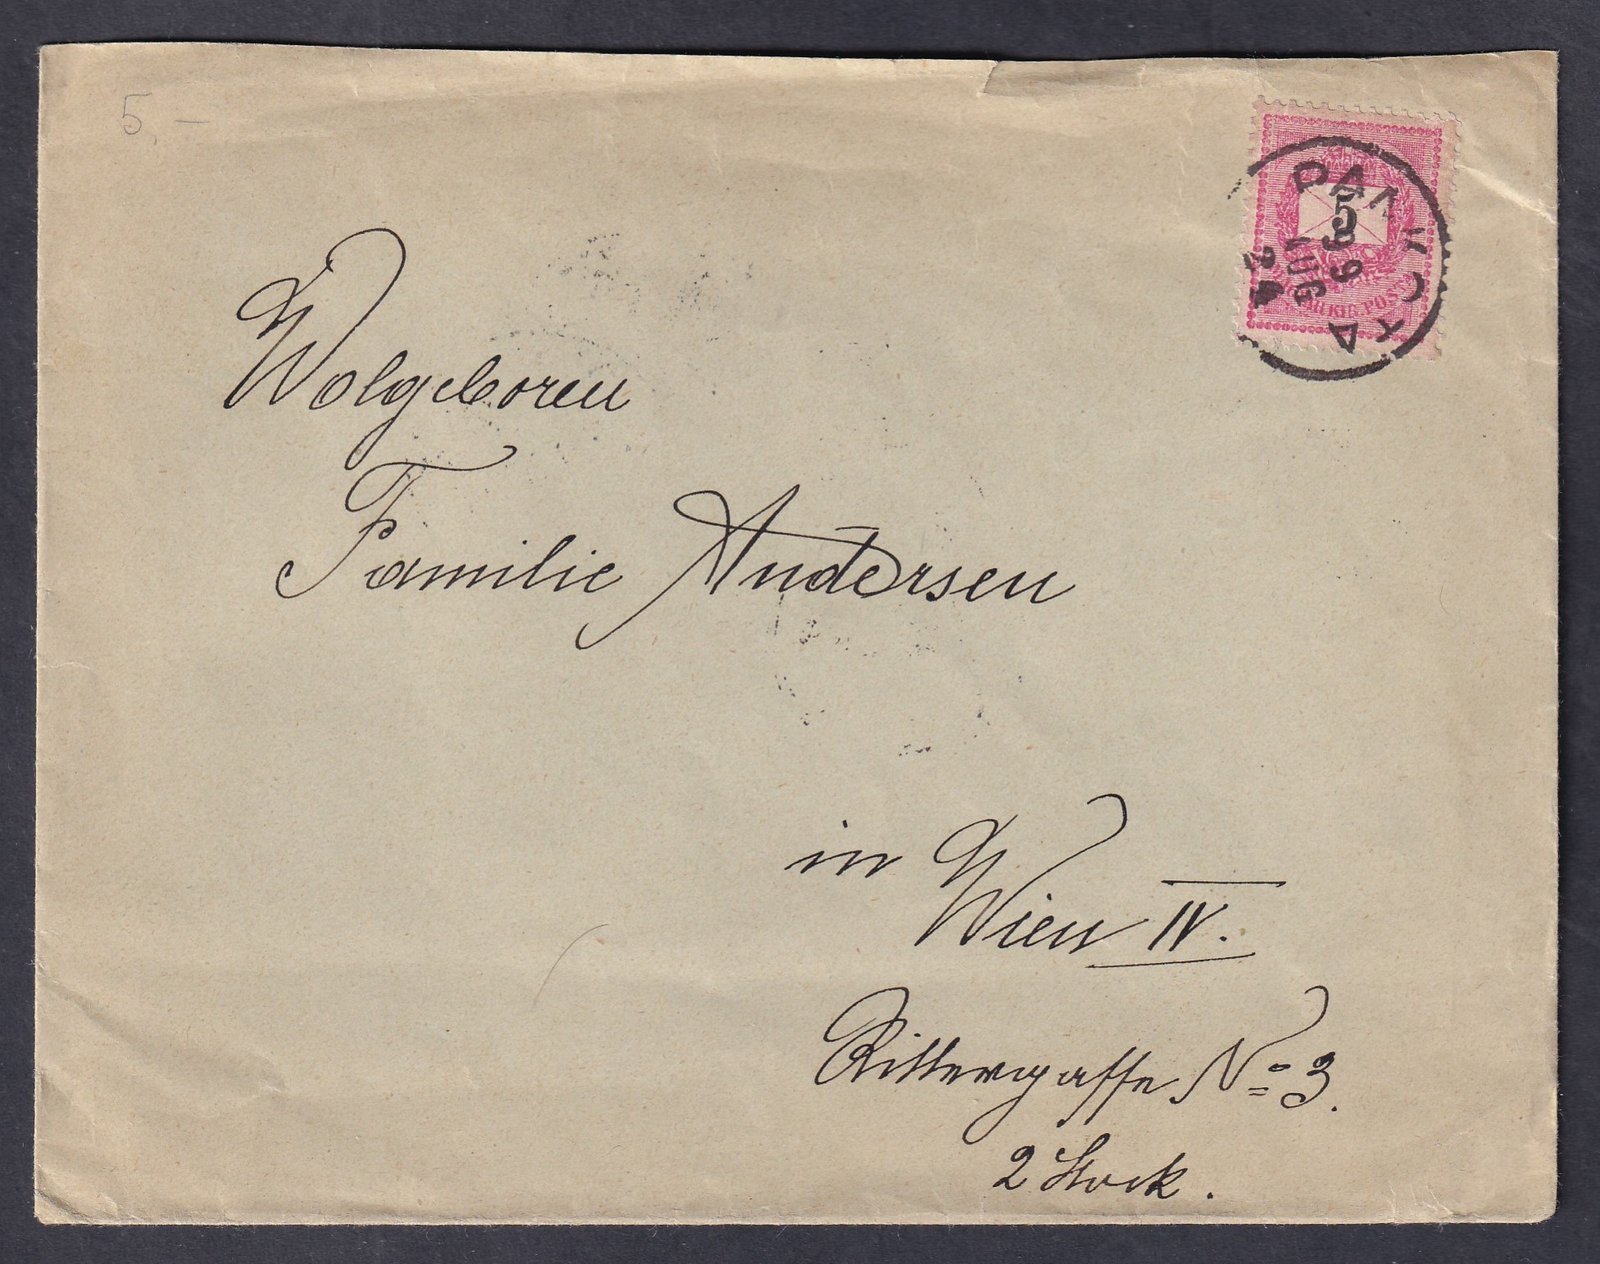 5,–
5
MAGY. KIR. POSTA
96
AUG
24
Wolgeboren
Familie Andersen
in Wien IV.
Rittergasse No 3.
2 Stock.